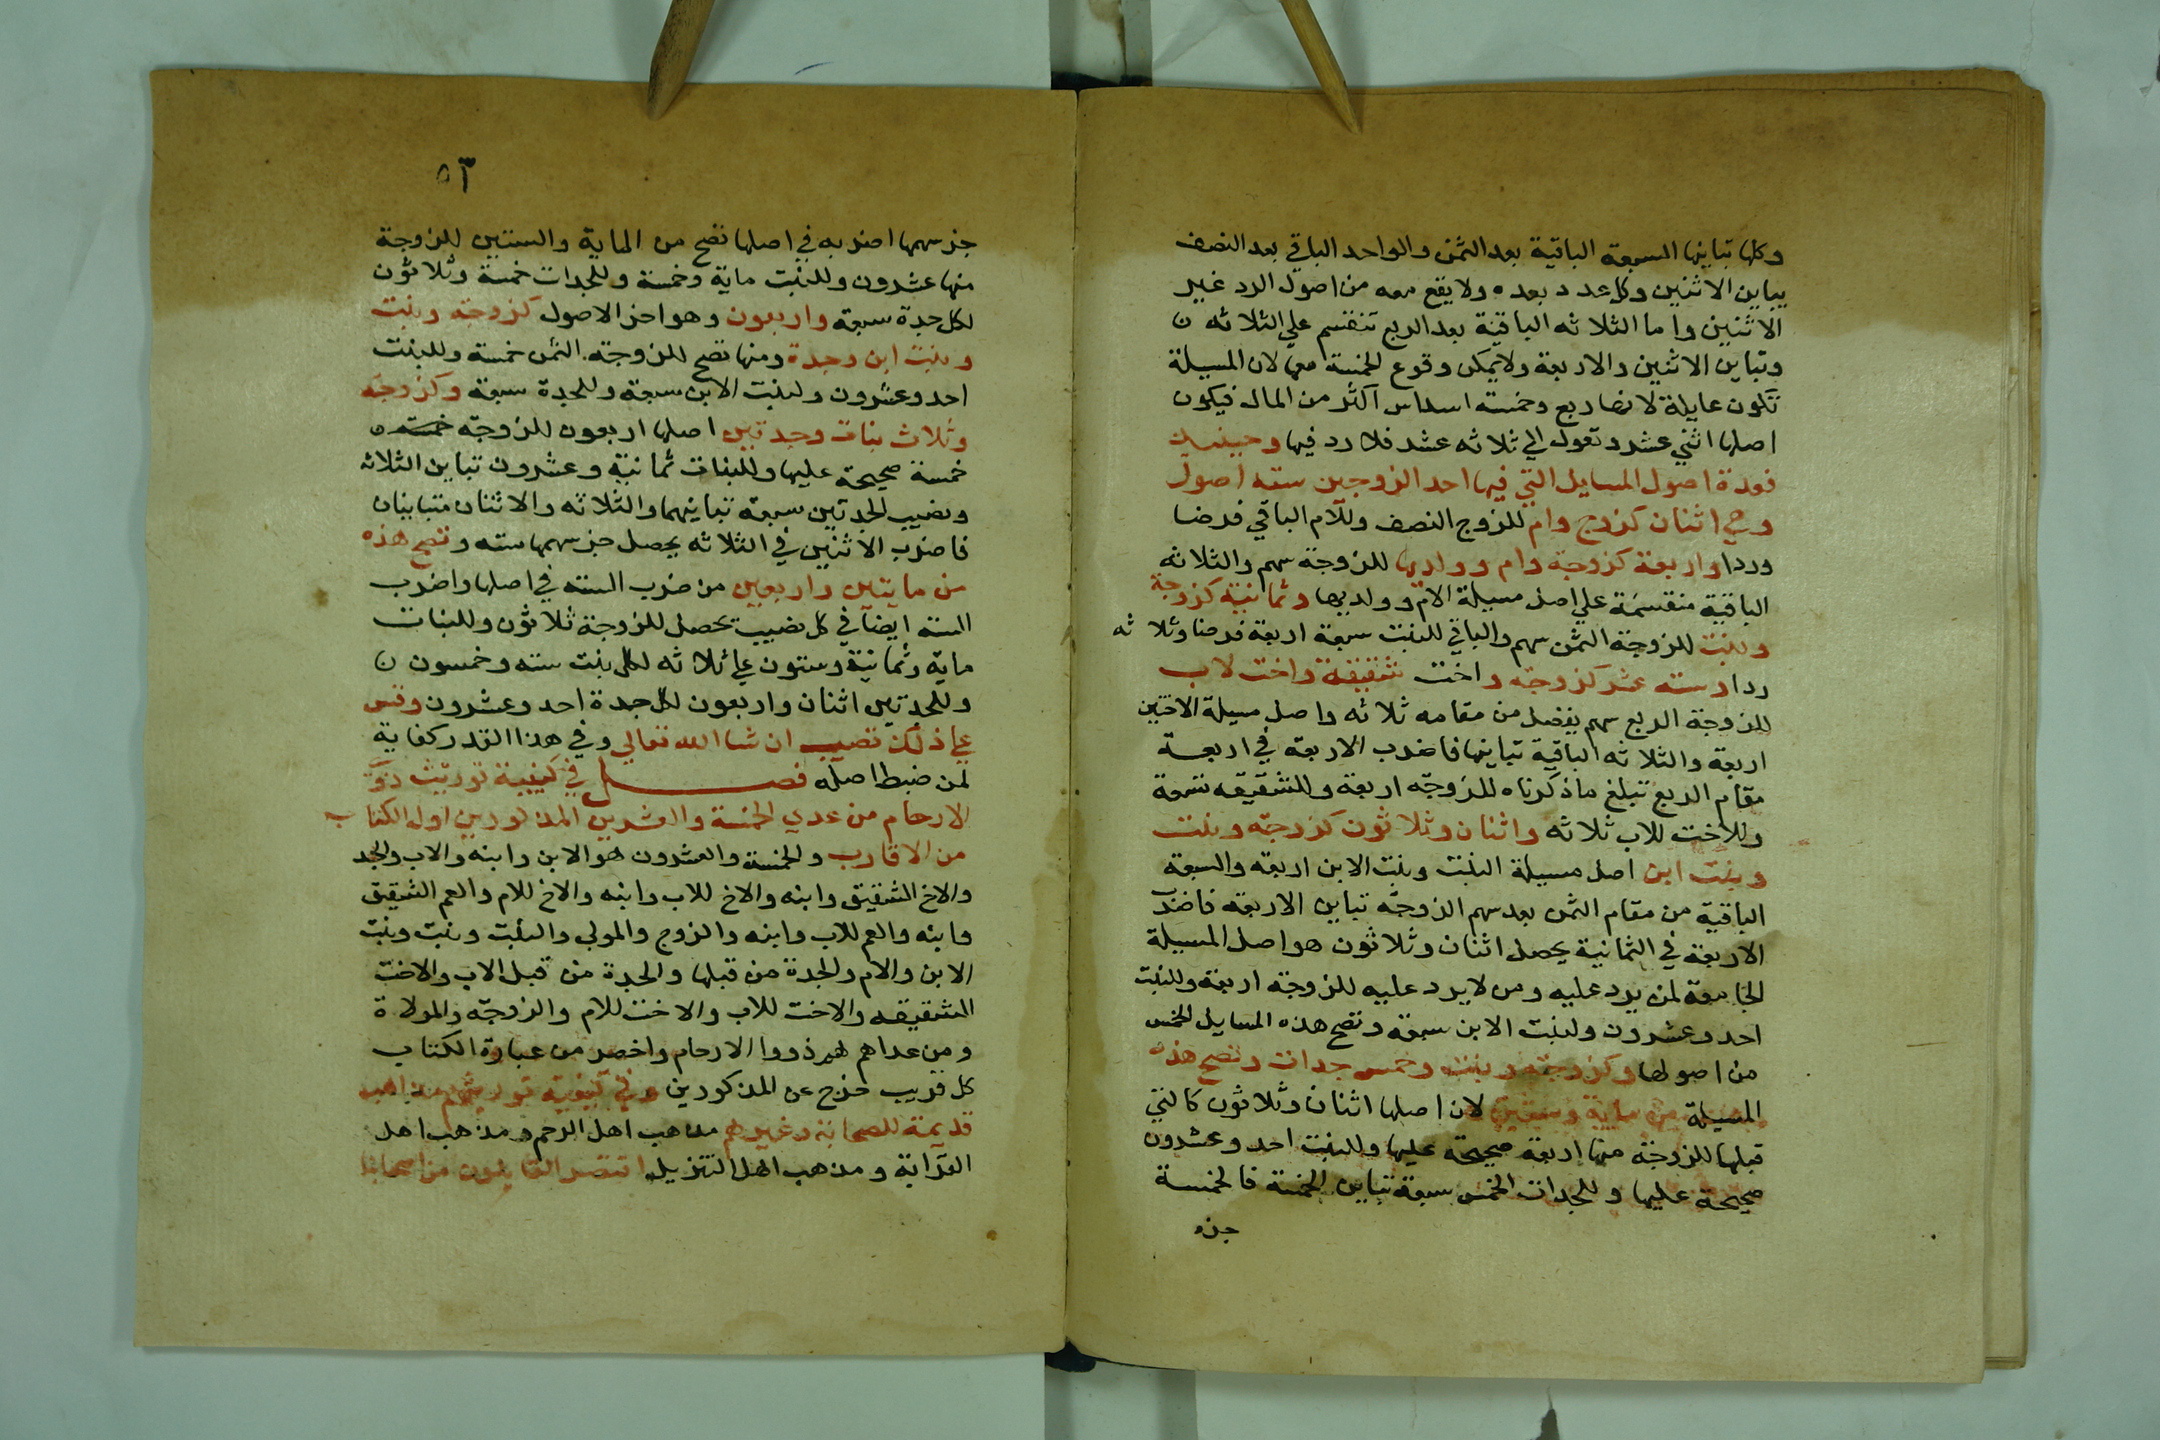 وكلها تباينها السبعة الباقية بعد الثمن والواحد الباقي بعد النصف
يباين الاثنين وكل عدد بعده ولا يقع معه من اصول الرد غير
الاثنين واما الثلاثه الباقية بعد الربع تنقسم علي الثلاثه ن
وتباين الاثنين والاربعة ولا يمكن وقوع الخمسة معها لان المسيلة
تكون عايلة لانها ربع وخمسة اسداس اكثر من المال فيكون
اصلها اثني عشر وتعول الي ثلاثه عشر فلا رد فيها وحينيذ
فعدة اصول المسايل التي فيها احد الزوجين سته اصول
وهي اثنان كزوج وام للزوج النصف وللام الباقي فرضا
وردا واربعة كزوجة وام وولديها للزوجة سهم والثلاثه
الباقية منقسمة علي اصل مسيلة الام وولديها وثمانية كزوجة
وبنت للزوجة الثمن سهم والباقي للبنت سبعة اربعة فرضا وثلاثه
ردا وسته عشر كزوجه واخت شقيقة واخت لاب
للزوجة الربع سهم يفضل من مقامه ثلاثه واصل مسيلة الاختين
اربعة والثلاثه الباقية تباينها فاضرب الاربعة في اربعة
مقام الربع تبلغ ما ذكرناه للزوجه اربعة وللشقيقه تسعة
وللاخت للاب ثلاثه واثنان وثلاثون كزوجه وبنت
وبنت ابن اصل مسيلة البنت وبنت الابن اربعه والسبعة
الباقية من مقام الثمن بعد سهم الزوجه تباين الاربعة فاضرب
الاربعة في الثمانية يحصل اثنان وثلاثون هو اصل المسيلة
الجامعة لمن يرد عليه ومن لا يرد عليه للزوجة اربعة وللبنت
احد وعشرون ولبنت الابن سبعة وتصح هذه المسايل الخمس
من اصولها وكزوجة وبنت وخمس جدات وتصح هذه
المسيلة من ماية وستين لان اصلها اثنان وثلاثون كالتي
قبلها للزوجة منها اربعة صحيحة عليها وللبنت احد وعشرون
صحيحة عليها وللجدات الخمس سبعة تباين الخمسة فالخمسة
جزء
٥٣
جز سهمها اضربه في اصلها تصح من الماية والستين للزوجة
منها عشرون وللبنت ماية وخمسة وللجدات خمسة وثلاثون
لكل جدة سبعة واربعون وهو اخر الاصول كزوجة وبنت
وبنت ابن وجدة ومنها تصح للزوجة الثمن خمسة وللبنت
احد وعشرون ولبنت الابن سبعة وللجدة سبعة وكزوجه
وثلاث بنات وجدتين اصلها اربعون للزوجة خمسه
خمسة صحيحة عليها وللبنات ثمانية وعشرون تباين الثلاثه
ونصيب الجدتين سبعة تباينهما والثلاثه والاثنان متباينان
فاضرب الاثنين في الثلاثه يحصل جز سهمها سته وتصح هذه
من مايتين واربعين من ضرب السته في اصلها واضرب
السته ايضا في كل نصيب يحصل للزوجة ثلاثون وللبنات
ماية وثمانية وستون علي ثلاثه لكل بنت سته وخمسون ن
وللجدتين اثنان واربعون لكل جدة احد وعشرون وقس
علي ذلك تصيب ان شا الله تعالي وفي هذا القدر كفاية
لمن ضبط اصله فصل في كيفية توريث ذوي
الارحام من عدي الخمسة والعشرين المذكورين اول الكتاب
من الاقارب والخمسة والعشرون هو الابن وابنه والاب والجد
والاخ الشقيق وابنه والاخ للاب وابنه والاخ للام والعم الشقيق
وابنه والعم للاب وابنه والزوج والمولي والبنت وبنت
الابن والام والجدة من قبلها والجدة من قبل الاب والاخت
الشقيقه والاخت للاب والاخت للام والزوجه والمولاة
ومن عداهم هم ذووا الارحام واخصر من عبارة الكتاب
كل قريب خرج عن المذكورين وفي كيفية توريثهم مذاهب
قديمة للصحابة وغيرهم مذهب اهل الرحم ومذهب اهل
القرابة ومذهب اهل التنزيل اقتصر القايلون من اصحابنا